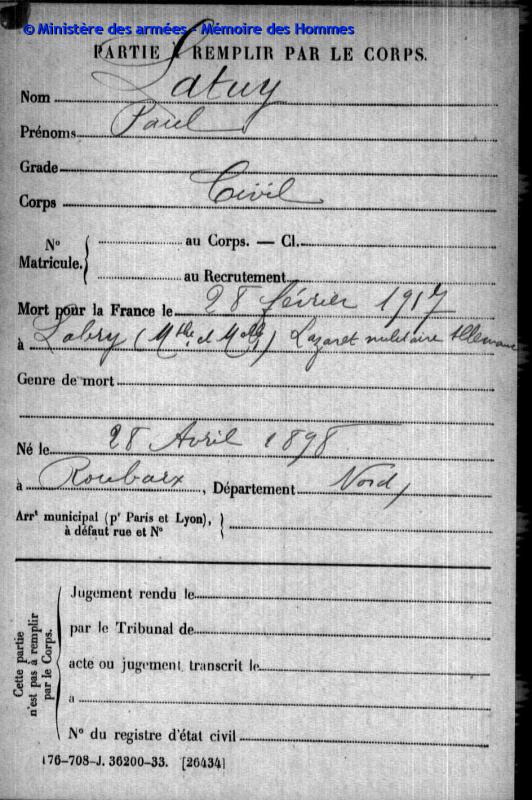 © Ministère des armées - Mémoire des Hommes
PARTIE À REMPLIR PAR LE CORPS.
Nom Latuy
Prénoms Paul
Grade
Corps Civil
N° Matricule. au Corps. — Cl.
au Recrutement
Mort pour la France le 28 février 1917
à Labry (Mthe et Mlle) Lazaret militaire Allemand
Genre de mort
Né le 28 Avril 1898
à Roubaix, Département Nord
Arrt municipal (pr Paris et Lyon),
à défaut rue et N°
Cette partie
n'est pas à remplir
par le Corps.
Jugement rendu le
par le Tribunal de
acte ou jugement transcrit le
a
N° du registre d'état civil
176-708-J. 36200-33. [26434]